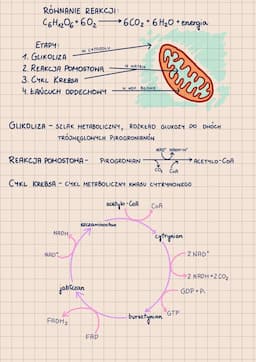 RÓWNANIE REAKCJI:
C₆H₁₂O₆ + 6O₂ → 6CO₂ + 6H₂O + energia
ETAPY:
1. GLIKOLIZA
W CYTOZOLU
2. REAKCJA POMOSTOWA
W MATRIX
3. CYKL KREBSA
4. ŁAŃCUCH ODDECHOWY
GLIKOLIZA - SZLAK METABOLICZNY, ROZKŁAD GLUKOZY DO DWÓCH
TRÓJWĘGLOWYCH PIROGRONIANÓW
REAKCJA POMOSTOWA - PIROGRONIAN → ACETYLO-CoA
NAD⁺ NADH+H⁺
CO₂ CoA
CYKL KREBSA - CYKL METABOLICZNY KWASU CYTRYNOWEGO
acetylo-CoA
CoA
szczawiooctan
cytrynian
NADH₂
NAD⁺
2 NAD⁺
2 NADH + 2CO₂
GDP + Pᵢ
GTP
jabłczan
bursztynian
FADH₂
FAD